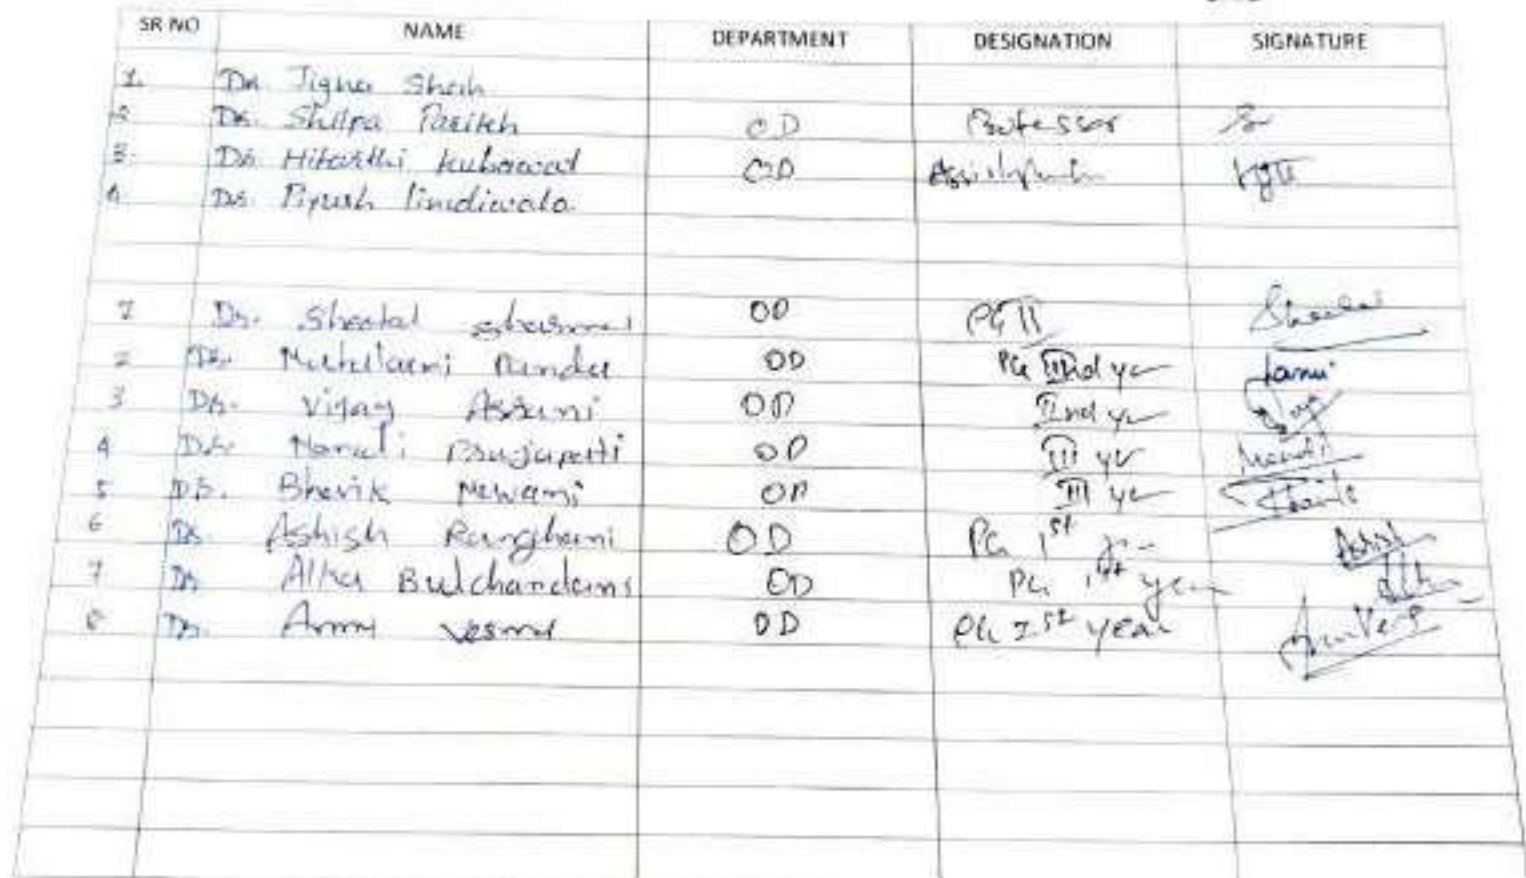 SR NO NAME DEPARTMENT DESIGNATION SIGNATURE
1. Dr. Jigna Shah
2 Dr. Shilpa Parikh OD Professor
3. Dr. Hitarthi OD
4 Dr. Piyush limdiwala
1 Dr. Sheetal Sharma OD PG II Sheetal
2 Dr. OD PG IIIrd yr
3 Dr. Vijay Assani OD IInd yr
4 Dr. Narali Prajapati OD III yr
5 Dr. Bhavik OD III yr
6 Dr. Ashish Ranghani OD PG 1st Ashish
7 Dr Alka Bulchandani OD PG 1st year Alka
8 Dr. OD PG 1st year